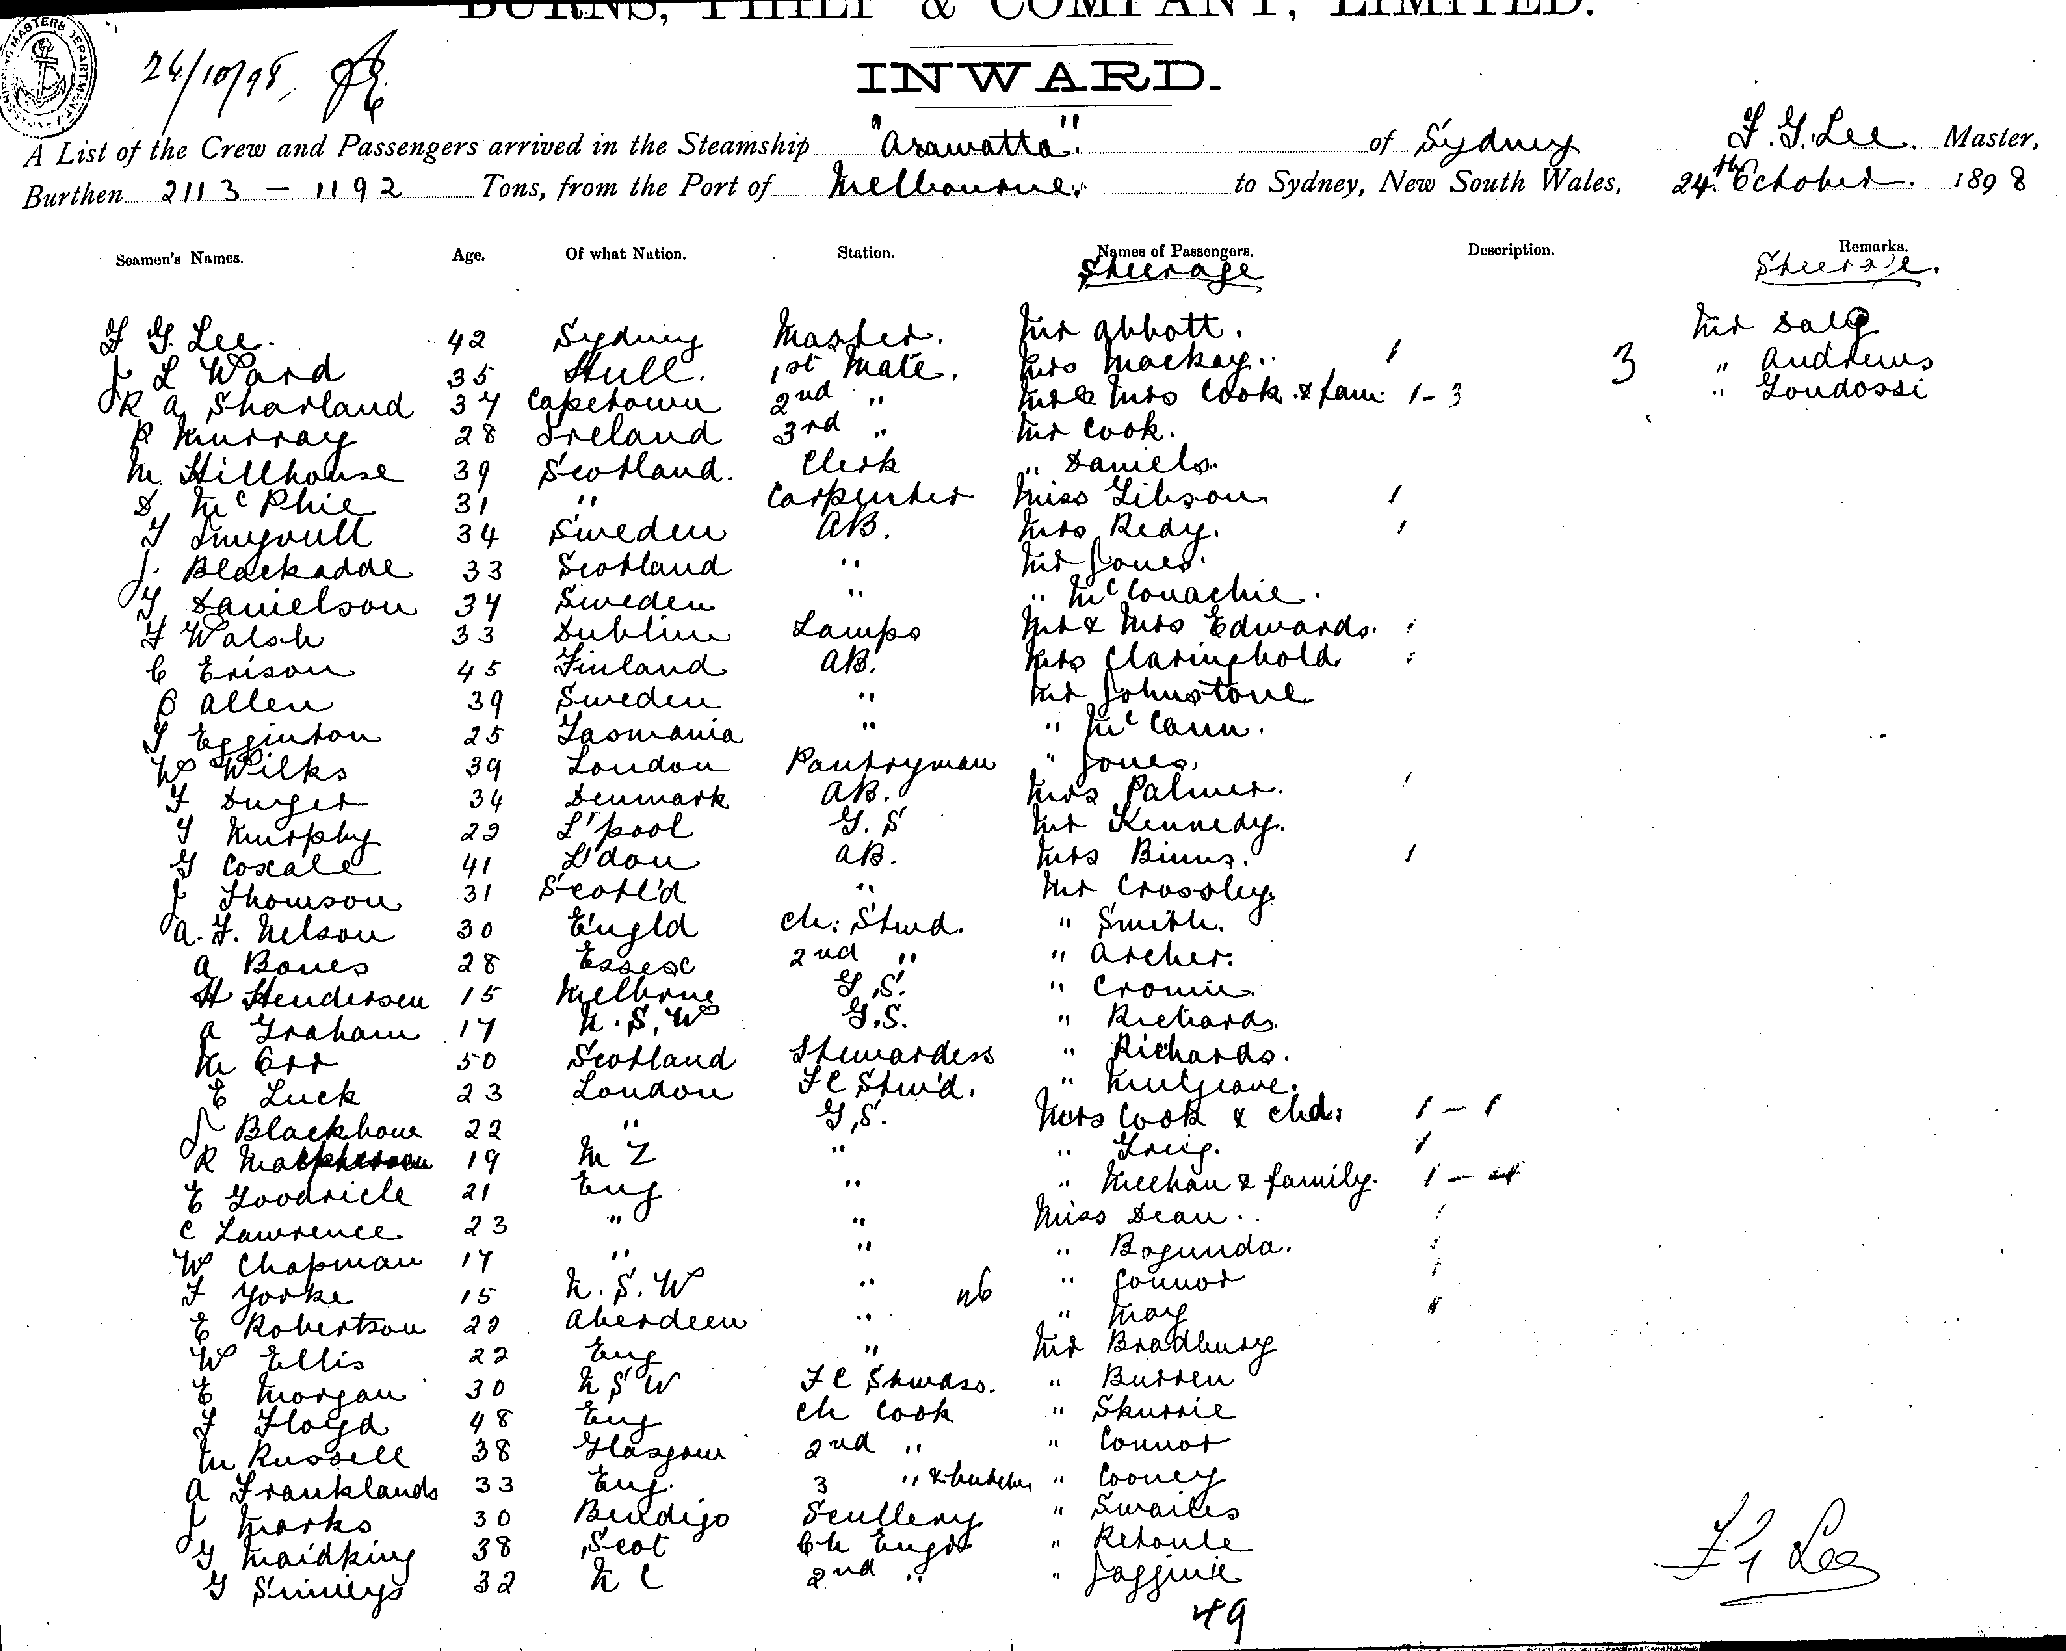 BURNS, PHILP & COMPANY, LIMITED.
24/10/98
INWARD.
A List of the Crew and Passengers arrived in the Steamship "Arawatta" of Sydney F. G. Lee. Master,
Burthen 2113 - 1192 Tons, from the Port of Melbourne, to Sydney, New South Wales, 24th October. 1898
Seamen's Names. Age. Of what Nation. Station. Names of Passengers. Description. Remarks.
Steerage Steerage.
F G. Lee. 42 Sydney Master. Mr Abbott. Mr Daly
J L Ward 35 Hull. 1st Mate. Mrs Mackay. 1 3 " Andrews
R A Sharland 37 Capetown 2nd " Mr & Mrs Cook & fam 1-3 " Goudossi
P Murray 28 Ireland 3rd " Mr Cook.
M. Hillhouse 39 Scotland. Clerk " Daniels.
D McPhie 31 " Carpenter Miss Gibson 1
34 Sweden AB. Mrs Redy. 1
J. Blackadde 33 Scotland " Mr Jones.
Y Danielson 34 Sweden " " McConachie.
F Walsh 33 Dublin Lamps Mr & Mrs Edwards. 1
C Erison 45 Finland AB. Mrs Claringbold 1
C Allen 39 Sweden " Mr Johnstone
T Egginton 25 Tasmania " " McCann.
W Wilks 39 London Pantryman " Jones.
F 34 Denmark AB. Mrs Palmer. 1
T Murphy 22 L'pool G. S Mr Kennedy.
G Coxale 41 L'don AB. Mrs Binns. 1
J Thomson 31 Scotl'd " Mr Crossley
A. F. Nelson 30 Engld Ch. Stwd. " Smith.
A Bones 28 Essex 2nd " " Archer.
H Hendersen 15 Melbrne G.S. " Cromie
A Graham 17 N.S.W G.S. " Richards
M Orr 50 Scotland Stewardess " Richards.
E Luck 23 London F C Stw'd. " Mulgrave.
J Blackhow 22 " G.S. Mrs Cook & chd. 1-1
R 19 N Z " " Greig. 1
E Goodricle 21 Eng " " Meehan & family. 1-4
C Lawrence 23 " " Miss Dean. 1
W Chapman 17 " " " Bogunda. 1
F Yorke 15 N.S.W " " Connor 1
E Robertson 22 Aberdeen " " May 1
W Ellis 22 Eng " Mr Bradbury
E Morgan 30 N S W F C Stwdss. " Burren
F Floyd 48 Eng Ch Cook " Skurrie
M Russell 38 Glasgow 2nd " " Connor
A Franklands 33 Eng. 3 " & butcher " Cooney
J Marks 30 Bendigo Scullery " Swailes
G Maidking 38 Scot Ch Engr " Retoule
G 32 N C 2nd " "
49
F G Lee